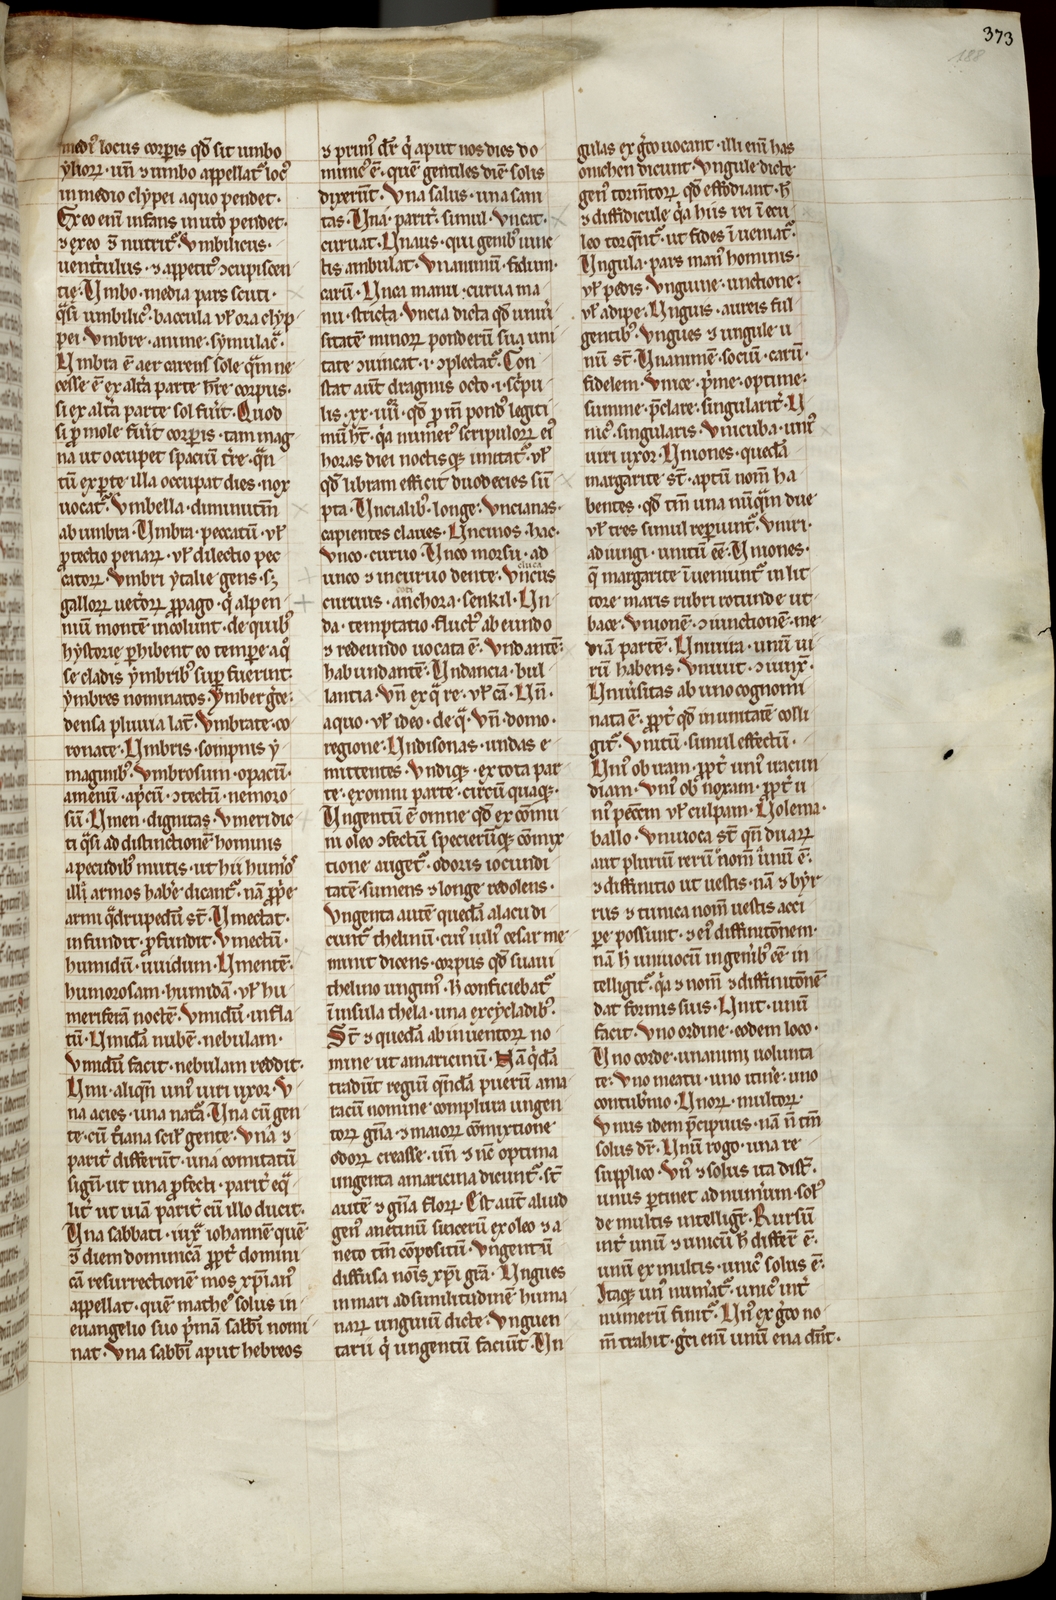 373
188
medi᷒ locus corꝑis qđ sit umbo
ẏliorꝝ · uñ ⁊ umbo appellat᷒ loc᷒
in medio clẏpei a quo pendet ·
Ex eo enī infans in ut̾o pendet ·
⁊ ex eo ⁊ nutrit᷒ · Vmbilicus ·
uent̾ulus · ⁊ appetit᷒ ↄcupiscen
tie · Vmbo · media pars scuti ·
q̈si umbilic᷒ · baccula vl̾ ora clẏp
pei · Vmbre · anime · sẏmulac̾ ·
Vmbra ē aer carens sole · q̈m ne
cesse ē ex alt̾a parte hr̄e corpus ·
si ex alt̾a parte sol fuīt · Quod
si ꝑ mole fuīt corꝑis · tam mag
na ut occupet spaciū t̾re · q̈n
tū ex ꝑte illa occupat dies · nox
uocat᷒ · Vmbella · diminutiū
ab umbra · Vmbra · peccatū · vl̾
ꝓtectio penarꝝ · vl̾ dilectio pec
catorꝝ · Vmbri ẏtalie gens · sꝫ
gallorꝝ uet̾orꝝ ꝓpago · q̇ alpen
niū montē incolunt · de quib᷒
hẏstorie ꝑhibent eo temꝑe · a q̇
se cladis ẏmbrib᷒ suꝑ fuerint ·
ẏmbres nominatos · ẏmber g̾ce ·
densa pluuia lat̾ · Vmbrate · co
ronate · Vmbris · sompnis ẏ
maginib᷒ · Vmbrosum · opacū ·
amenū · ap̾cū · ↄtectū · nemoro
sū · Vmeri · dignitas · Vmeri dic
ti q̈si ad distinctionē hominis
a pecudib᷒ mutis · ut hii hum̾os
illi armos hab̾e dicant᷒ · nā ꝓp̾e
armi q̈drupedū st̄ · Vmectat ·
infundit · ꝓfundit · Vmectū ·
humidū · uuidum · Vmentē ·
humorosam · humidā · vl̾ hu
meriferā noctē · Vmidū · infla
tū · Vmidā nubē · nebulam ·
Vmidū facit · nebulam reddit ·
Vmi · aliqn̄ uni᷒ uiri uxor · V
na acies · una nata᷒ · Vna cū gen
te · cū t̾iana scil̾ gente · Vna ⁊
parit̾ differūt · una comitatū
signt̾ · ut una ꝓfecti · parit̾ eq̈
lit̾ ut uiā parit̾ cū illo ducit ·
Vna sabbati · iux̾ iohannē quē
⁊ diem dominicā ꝓpt̾ domini
cā resurrectionē mos xp̄ian᷒
appellat · quē mathe᷒ solus in
euangelio suo p̾mā sabb̄i nomi
nat · Vna sabb̄i aput hebreos
⁊ prim᷒ dr̄ · q̇ aput nos dies do
minic᷒ ē · quē gentiles diē solis
dixerūt · Vna salus · una sani
tas · Vna · parit̾ · simul · Vncat ·
curuat · Vnaus · qui genib᷒ iunc
tis ambulat · Vnanimū · fidum ·
carū · Vnca manu · curua ma
nu · stricta · Vncia dicta qđ uniū
sitatē minorꝝ ponderū sua uni
tate ↄuincat · i · ↄplectat᷒ · Con
stat aut̄ dragmis octo · i · sc̾pu
lis · xx · iiii · qđ ꝑ īn pond᷒ legiti
mū h̄t · q̇a nuīer᷒ scripulorꝝ ei᷒
horas diei noctisqꝫ imitat᷒ · vl̾
qđ libram efficit duodecies sū
pta · Vncialib᷒ · longe · Vncianas ·
capientes claues · Vncinos · hac ·
Vnco · curuo · Vnco morsu · ad
unco ⁊ incuruo dente · Vncus
curuus · anchora · senkil · Vn
da · temptatio · fluct᷒ ab eundo
⁊ redeundo uocata ē · Vndantē ·
habundantē · Vndancia · bul
lantia · Vn̄ ex q̈ re · vl̾ cā · Vn̄ ·
a quo · vl̾ ideo · de q̈ · Vn̄ · domo ·
regione · Vndisonas · undas e
mittentes · Vndiqꝫ · ex tota par
te · ex omni parte · circū quaqꝫ ·
Vngentū ē omne qđ ex cōmu
ni oleo ↄfectū specierūqꝫ cōmix
tione auget᷒ · odoris iocundi
tatē sumens ⁊ longe redolens ·
Vngenta autē quedā a lacu di
cunt᷒ thelinū · cui᷒ iuli᷒ cesar me
minit dicens · corpus qđ suaui
thelino ungim᷒ · h̄ conficiebat᷒
ī insula thela · una ex cẏcladib᷒ ·
St̄ ⁊ quedā ab inuentorꝝ no
mine ut amaricinū · Hā q̇dā
tradūt regiū qn̄dā puerū ama
racū nomine complura ungen
torꝝ gn̄a ⁊ maiorꝝ cōmixtione
odorꝝ creasse · uñ ⁊ nc̄ optima
ungenta amaricina dicunt᷒ · st̄
autē ⁊ gn̄a florꝝ · Est aut̄ aliud
gen᷒ anetinū sincerū ex oleo ⁊ a
neto tm̄ cōpositū · Vngentū
diffusa nōis xp̄i gr̄a · Vngues
in mari ad similitudinē huma
narꝝ unguiū dicte · Vnguen
tarii q̇ ungentū faciūt · Vn
gulas ex g̾co uocant · illi enī has
onichen dicunt · Vngule dicte
gen᷒ torm̄torꝝ qđ effodiant · h̄
⁊ diffidicule q̇a hiis rei ī ecu
leo torq̄nt᷒ · ut fides īueniat᷒ ·
Vngula · pars man᷒ hominis ·
vl̾ pedis · Vnguine · unctione ·
vl̾ adipe · Vnguis · aureis ful
gentib᷒ · Vngues ⁊ ungule u
nū st̄ · Vnanimē · sociū · carū ·
fidelem · Vnice · p̾me · optime ·
summe · p̄clare · singularit̾ · V
nic᷒ · singularis · Vnicuba · uni᷒
uiri uxor · Vniones · quedā
margarite st̄ · aptū nom̄ ha
bentes · qđ tm̄ una nūq̈m due
vl̾ tres simul reꝑiunt᷒ · Vniri ·
adiungi · unitū eē · Vniones ·
q̄ margarite īueniunt᷒ in lit
tore maris rubri rotunde ut
bace · Vnionē · ↄiunctionē · me
diā partē · Vniuira · unū ui
rū habens · Vniuit · ↄiunx̾ ·
Vniūsitas ab uno cognomi
nata ē · ꝓpt̾ qđ in unitatē colli
git᷒ · Vnitū · simul effectū ·
Vni᷒ ob iram · ꝓpt̾ uni᷒ iracun
diam · Vni᷒ ob noxam · ꝓpt̾ u
ni᷒ pecc̄m vl̾ culpam · Holema
ballo · Vniuoca st̄ qn̄ duarꝝ
aut plurimū rerū nom̄ unū ē ·
⁊ diffinitio ut uestis · nā ⁊ bẏr
rus ⁊ tunica nom̄ uestis acci
pe possunt · ⁊ ei᷒ diffinitōnem ·
nā h̄ uniuocū in genib᷒ eē in
telligit᷒ · q̇a ⁊ nom̄ ⁊ diffinitōnē
dat formis suis · Vnit · unū
facit · Vno ordine · eodem loco ·
Vno corde · unanimi uolunta
te · Vno meatu · uno itin̾e · uno
contub̾nio · Vnorꝝ · multorꝝ ·
Vnus idem p̄cipuus · nā ñ tm̄
solus dr̄ · Vnū rogo · una re
supplico · Vn᷒ ⁊ solus ita dist̄ ·
unus ꝑtinet ad num̾um · sol᷒
de multis intelligr̄ · Rursū
int̾ unū ⁊ unicū h̄ differr̄ ē ·
unū ex multis · unic᷒ solus ē ·
Itaqꝫ un᷒ num̾at᷒ · unic᷒ int̾
numerū finit᷒ · Vn᷒ ex g̾co no
m̄ trahit · g̾ci enī unū ena dn̄t ·